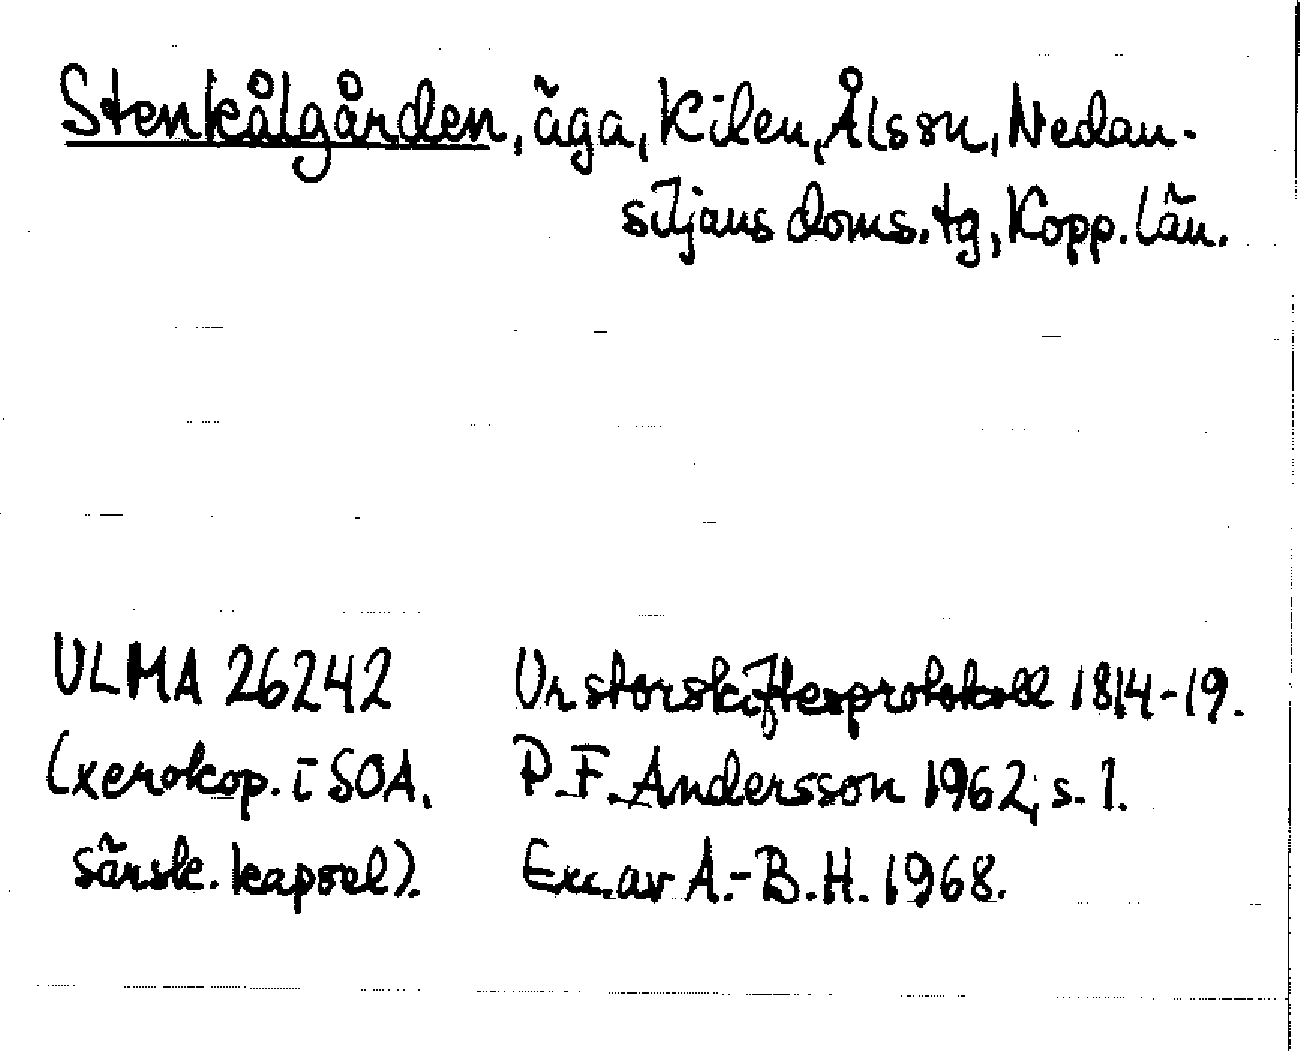 Stenkålgården, äga, Kilen, Ål ssn, Nedan-
siljans doms. tg, Kopp. län.
ULMA 26242
(xerokop. i SOA,
särsk. kapsel).
Ur storskiftesprotokoll 1814-19.
P.F. Andersson 1962, s. 1.
Exc. av A.-B.H. 1968.